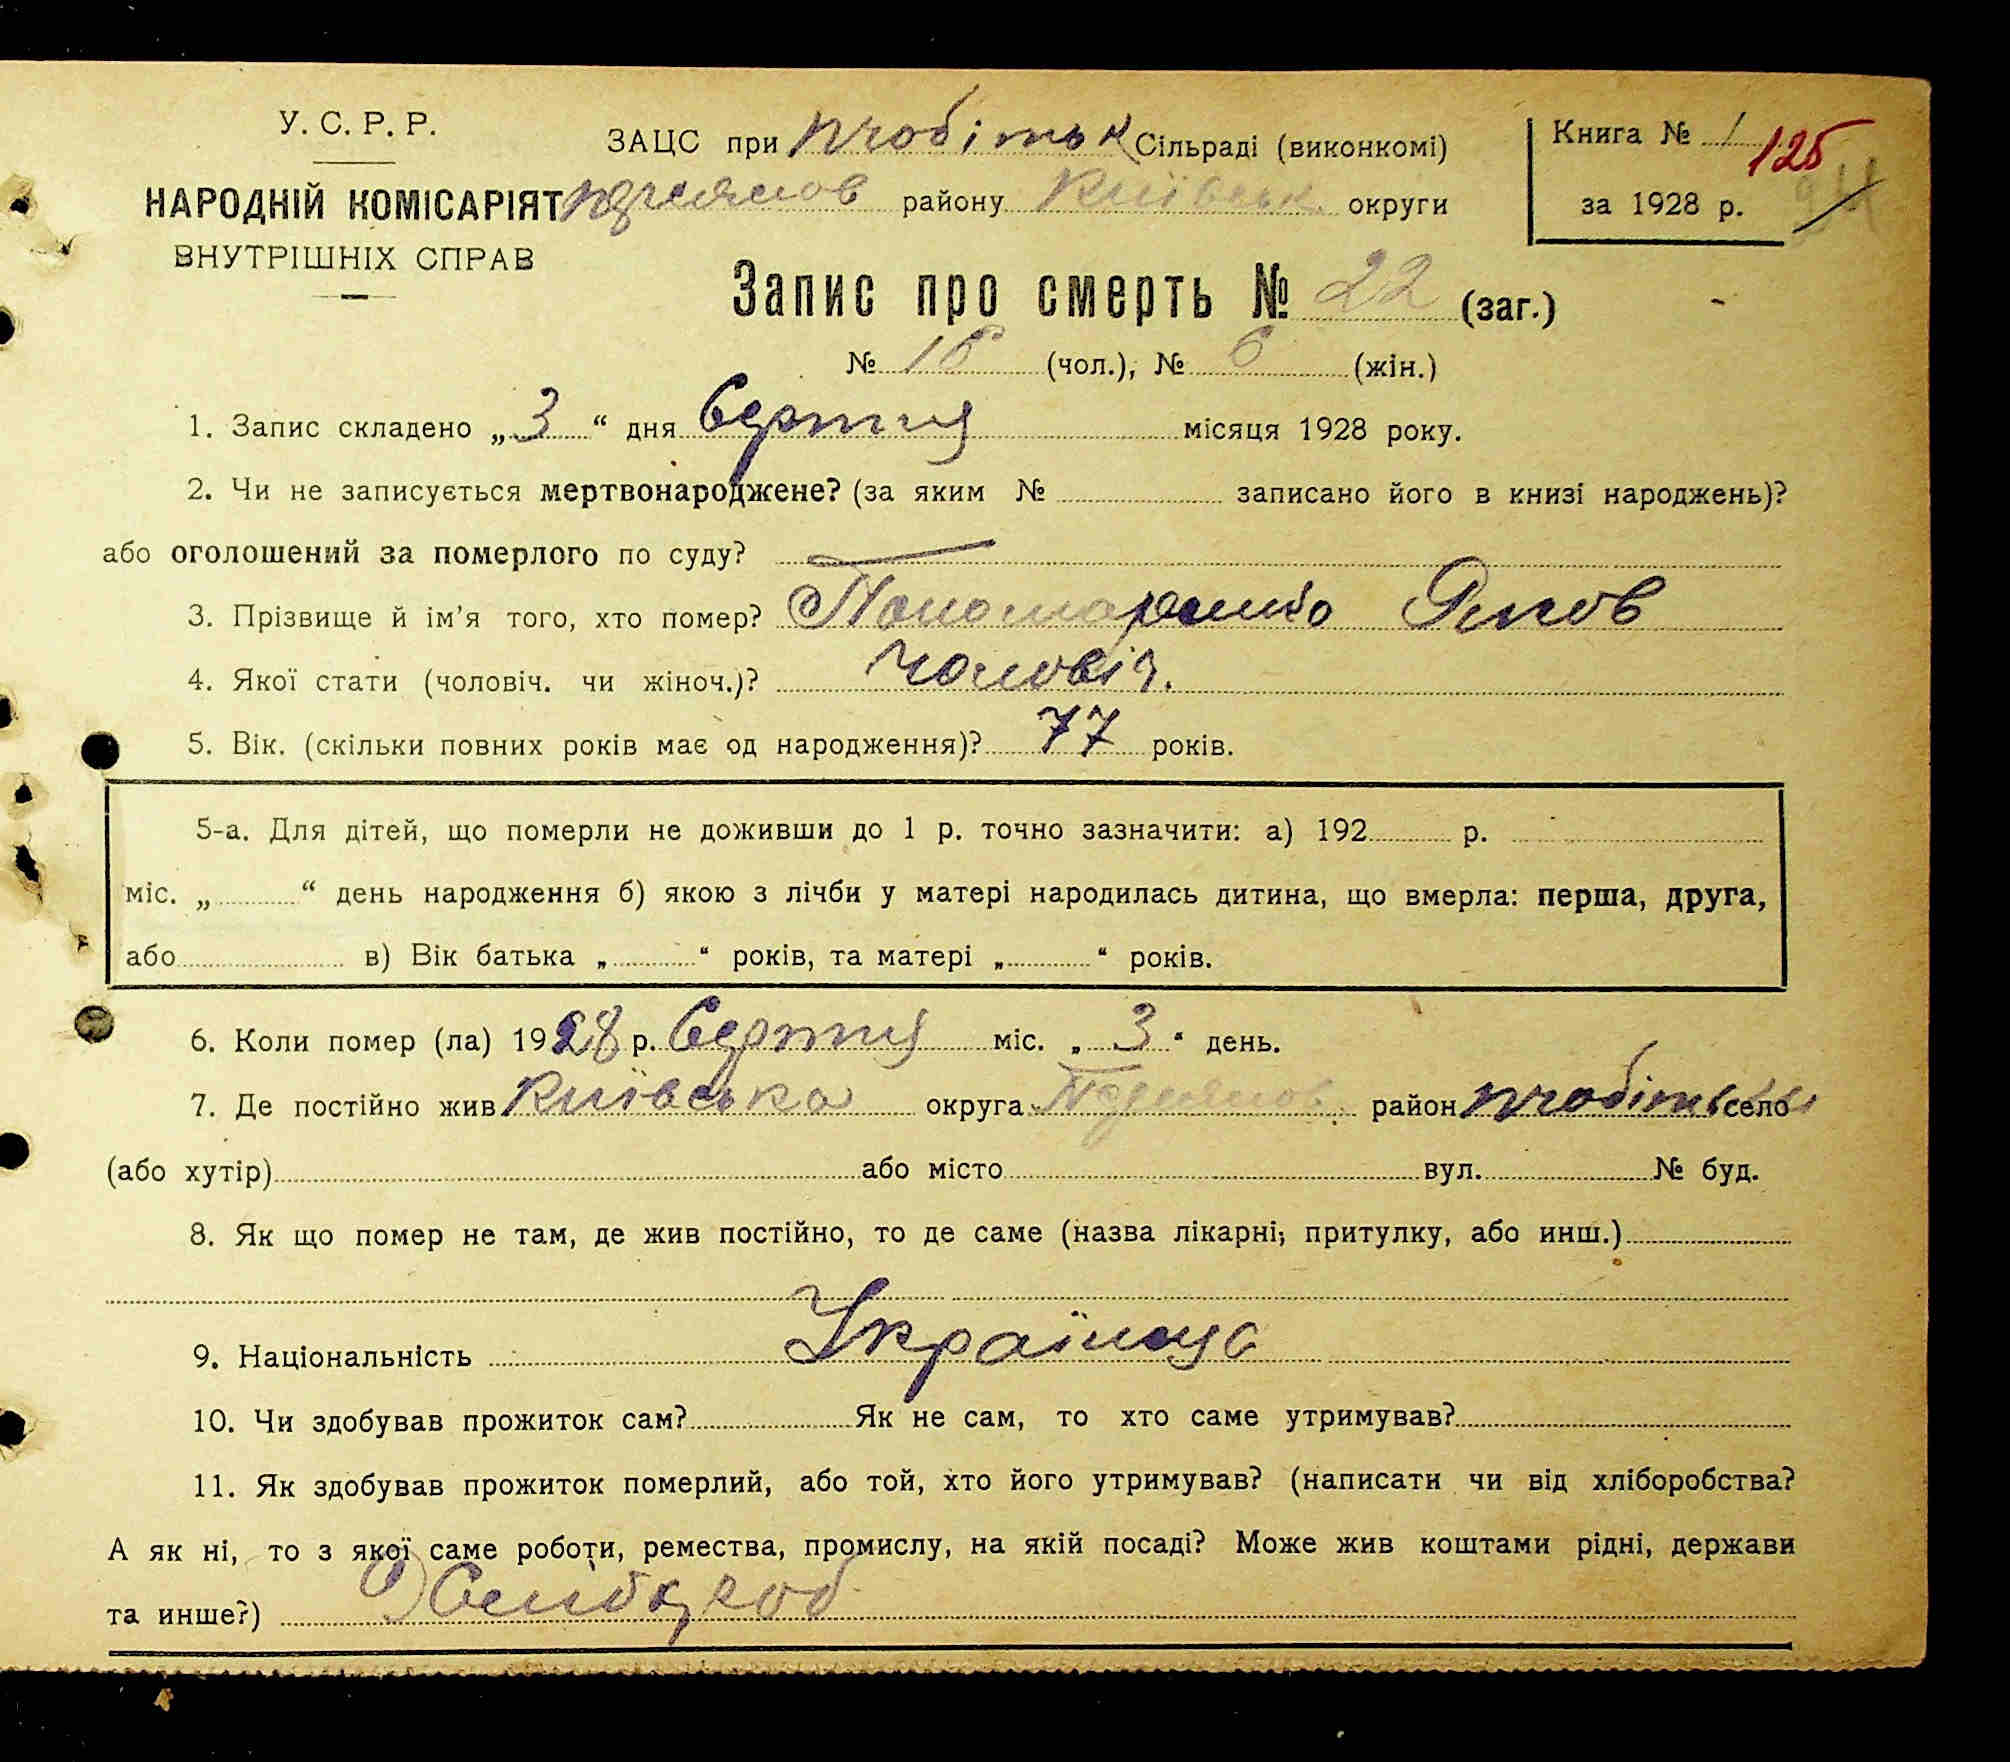 У. С. Р. Р.
НАРОДНІЙ КОМІСАРІЯТ
ВНУТРІШНІХ СПРАВ
ЗАЦС при Сільраді (виконкомі)
району Київськ. округи
Книга № 1
125
за 1928 р.
Запис про смерть № 22 (заг.)
№ 16 (чол.), № 6 (жін.)
1. Запис складено „ 3 “ дня Серпня місяця 1928 року.
2. Чи не записується мертвонароджене? (за яким № записано його в книзі народжень)?
або оголошений за померлого по суду?
3. Прізвище й ім’я того, хто помер? Пономаренко Яков
4. Якої стати (чоловіч. чи жіноч.)? чоловіч.
5. Вік. (скільки повних років має од народження)? 77 років.
5-а. Для дітей, що померли не доживши до 1 р. точно зазначити: а) 192 р.
міс. „ “ день народження б) якою з лічби у матері народилась дитина, що вмерла: перша, друга,
або в) Вік батька „ “ років, та матері „ “ років.
6. Коли помер (ла) 1928 р. Серпня міс. „ 3 “ день.
7. Де постійно жив Київська округа район село
(або хутір) або місто вул. № буд.
8. Як що помер не там, де жив постійно, то де саме (назва лікарні, притулку, або инш.)
9. Національність Українец
10. Чи здобував прожиток сам? Як не сам, то хто саме утримував?
11. Як здобував прожиток померлий, або той, хто його утримував? (написати чи від хліборобства?
А як ні, то з якої саме роботи, ремества, промислу, на якій посаді? Може жив коштами рідні, держави
та инше?)